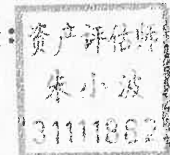 资产评估师
朱小波
31111882